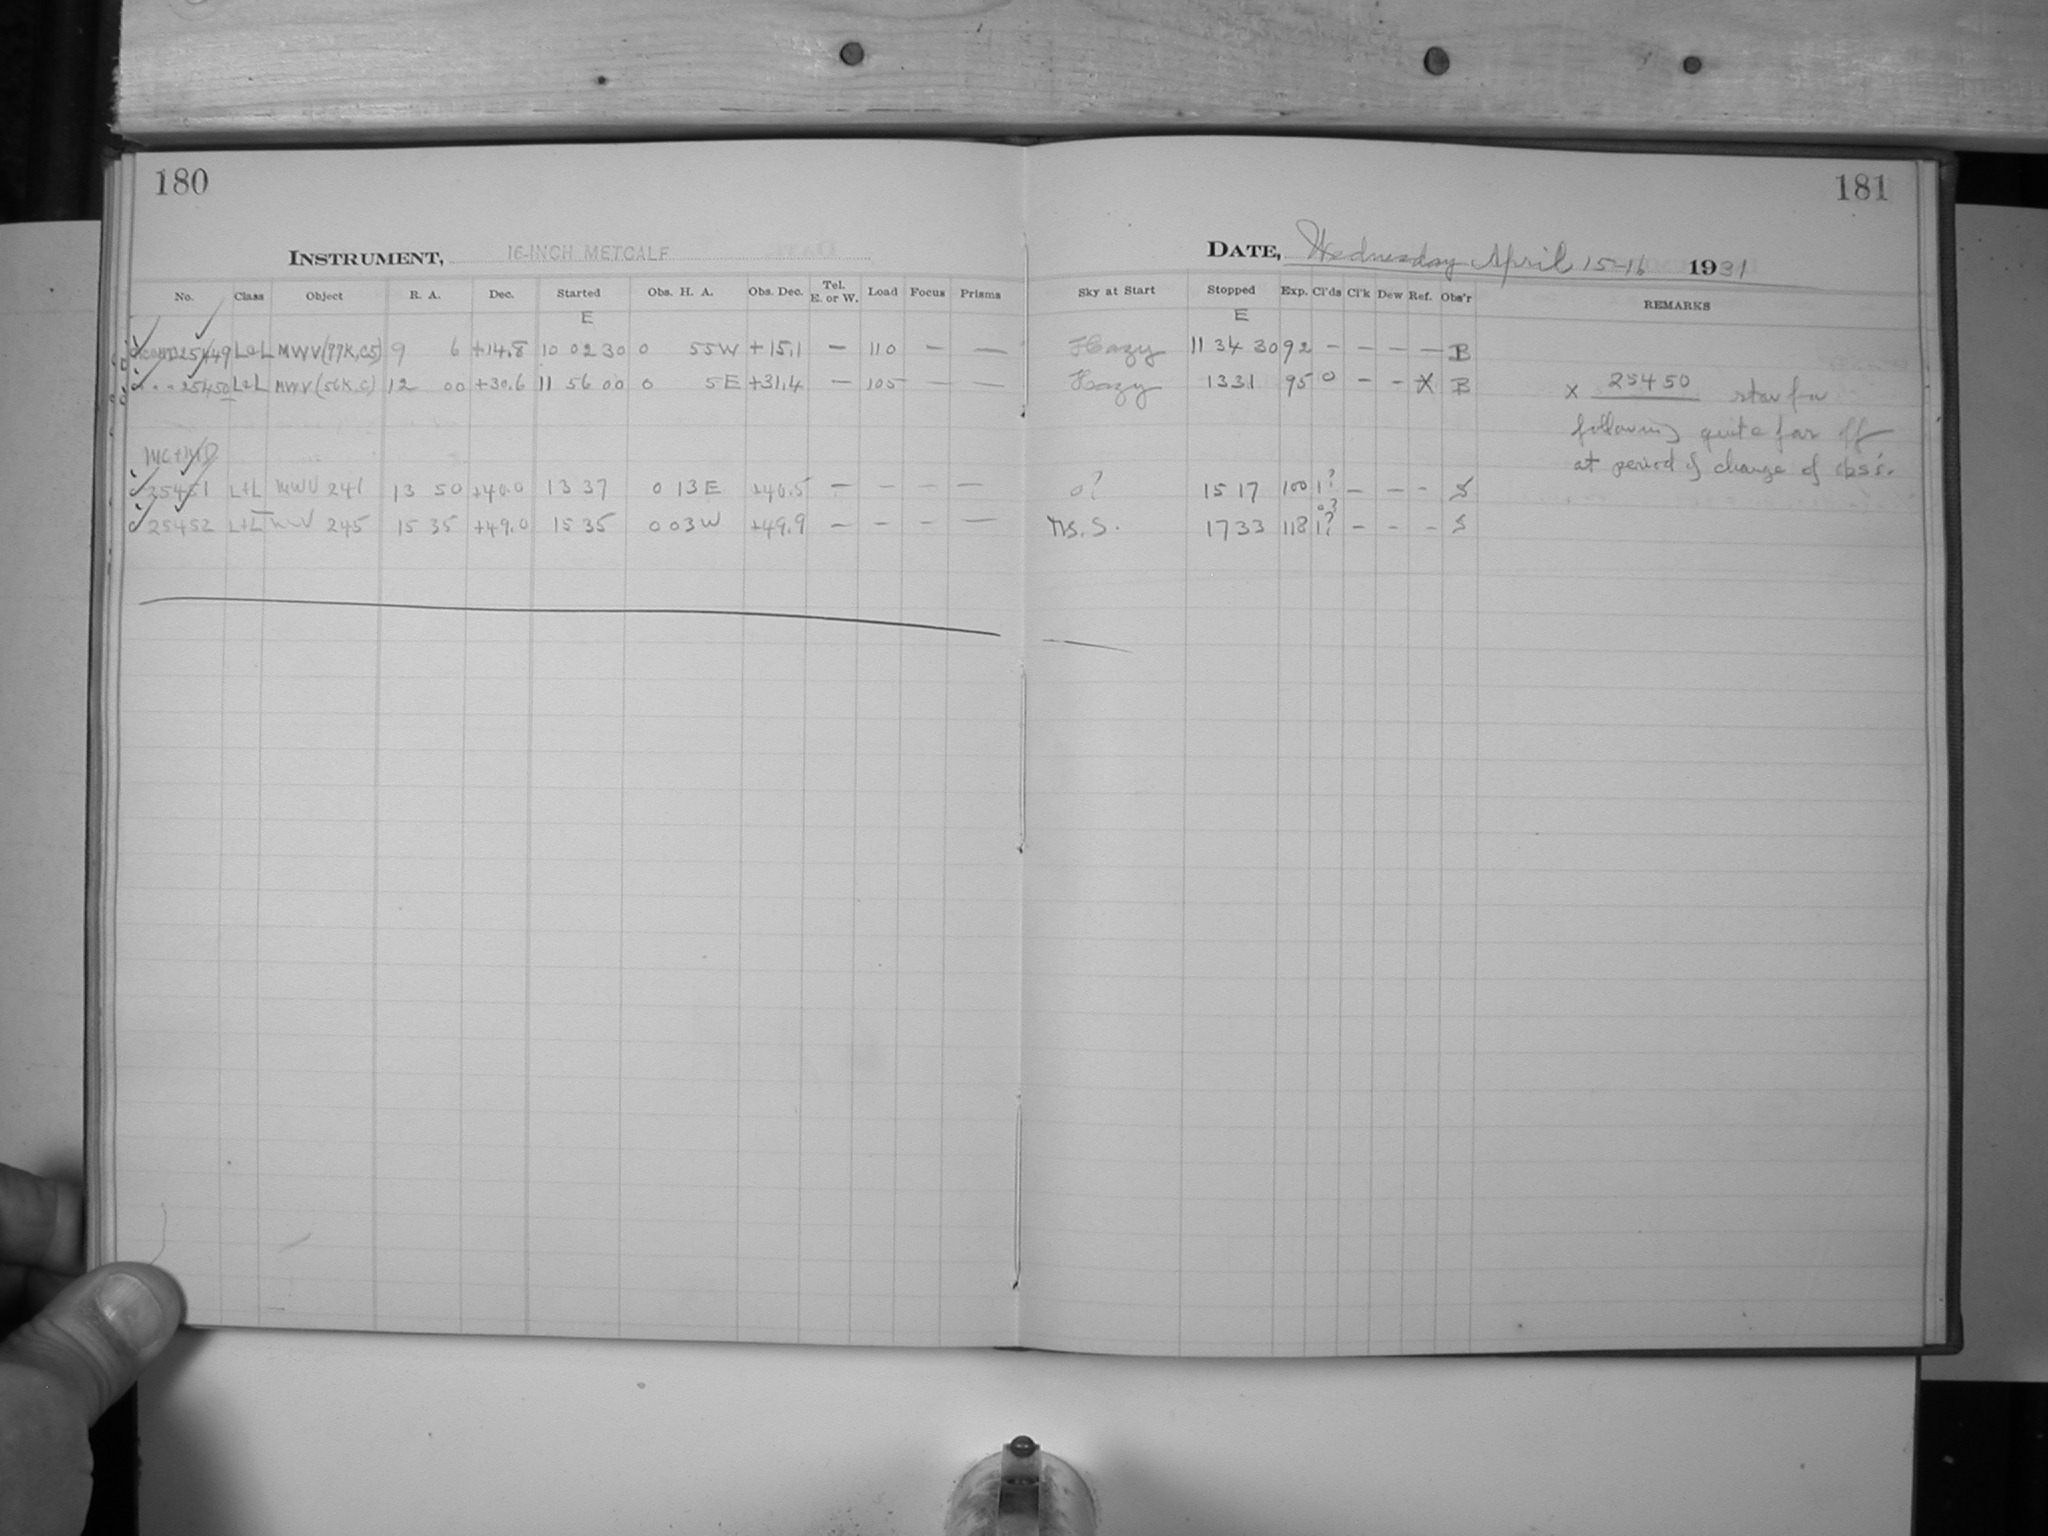 180
181
INSTRUMENT, 16-INCH METCALF
DATE, Wednesday April 15-16 1931
No. Class Object R. A. Dec. Started Obs. H. A. Obs. Dec. Tel. E. or W. Load Focus Prisms Sky at Start Stopped Exp. Cl'ds Cl'k Dew Ref. Obs'r REMARKS
E E
25449 L&L MWV (77K,C5) 9 6 +14.8 10 02 30 0 55W +15.1 — 110 — — Hazy 11 34 30 92 – – – — B
25450 L&L MWV (56K,C) 12 00 +30.6 11 56 00 0 5E +31.4 — 105 – — Hazy 1331 95 0 – – X B
x 25450 star for
following quite far off
at period of change of obs'r.
MC+MD
25451 L+L MWV 241 13 50 +40.0 13 37 0 13E +40.5 — – – — 0? 15 17 100 1? – – – S
25452 L+L MWV 245 15 35 +49.0 15 35 0 03W +49.9 — – – — Ns. S. 1733 118 1? – – – S